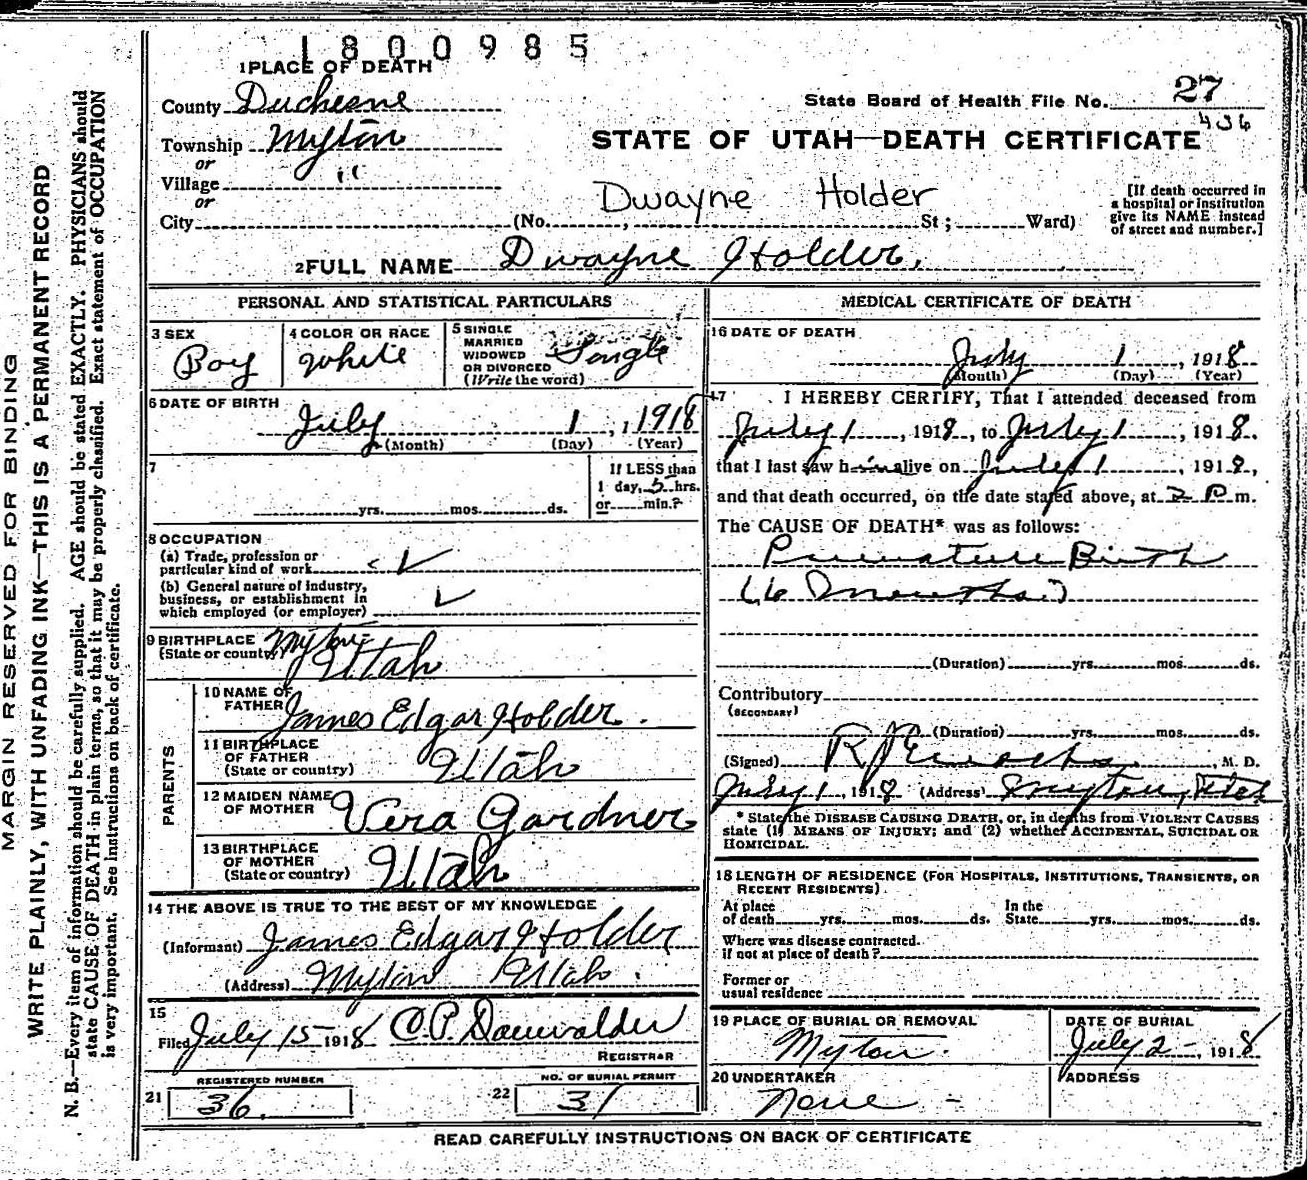 1800985
1 PLACE OF DEATH
County Duchesne
State Board of Health File No. 27
436
Township Myton
STATE OF UTAH—DEATH CERTIFICATE
or
Village "
or
Dwayne Holder
City (No. , St ; Ward)
[If death occurred in
a hospital or institution
give its NAME instead
of street and number.]
2 FULL NAME Dwayne Holder,
PERSONAL AND STATISTICAL PARTICULARS
3 SEX
Boy
4 COLOR OR RACE
White
5 SINGLE
MARRIED
WIDOWED
OR DIVORCED
(Write the word)
Single
6 DATE OF BIRTH
July 1, 1918
(Month) (Day) (Year)
7
yrs. mos. ds.
If LESS than
1 day, 5 hrs.
or min.?
8 OCCUPATION
(a) Trade, profession or
particular kind of work
(b) General nature of industry,
business, or establishment in
which employed (or employer)
9 BIRTHPLACE Myton
(State or country) Utah
PARENTS
10 NAME OF
FATHER James Edgar Holder.
11 BIRTHPLACE
OF FATHER
(State or country) Utah
12 MAIDEN NAME
OF MOTHER Vera Gardner
13 BIRTHPLACE
OF MOTHER
(State or country) Utah
14 THE ABOVE IS TRUE TO THE BEST OF MY KNOWLEDGE
(Informant) James Edgar Holder
(Address) Myton Utah.
15
Filed July 15 1918 C.P. Dauwalder
REGISTRAR
21 REGISTERED NUMBER
36.
22 NO. OF BURIAL PERMIT
31
MEDICAL CERTIFICATE OF DEATH
16 DATE OF DEATH
July 1, 1918
(Month) (Day) (Year)
17 I HEREBY CERTIFY, That I attended deceased from
July 1, 1918, to July 1, 1918.
that I last saw him alive on July 1, 1918,
and that death occurred, on the date stated above, at 2 P m.
The CAUSE OF DEATH* was as follows:
Premature Birth
(6 months)
(Duration) yrs. mos. ds.
Contributory
(SECONDARY)
(Duration) yrs. mos. ds.
(Signed) R J , M. D.
July 1, 1918 (Address) Myton, Utah
* State the DISEASE CAUSING DEATH, or, in deaths from VIOLENT CAUSES
state (1) MEANS OF INJURY; and (2) whether ACCIDENTAL, SUICIDAL OR
HOMICIDAL.
18 LENGTH OF RESIDENCE (FOR HOSPITALS, INSTITUTIONS, TRANSIENTS, OR
RECENT RESIDENTS).
At place
of death yrs. mos. ds.
In the
State yrs. mos. ds.
Where was disease contracted.
if not at place of death?
Former or
usual residence
19 PLACE OF BURIAL OR REMOVAL
Myton.
DATE OF BURIAL
July 2-, 1918
20 UNDERTAKER
None -
ADDRESS
READ CAREFULLY INSTRUCTIONS ON BACK OF CERTIFICATE
MARGIN RESERVED FOR BINDING
WRITE PLAINLY, WITH UNFADING INK—THIS IS A PERMANENT RECORD
N. B.—Every item of information should be carefully supplied. AGE should be stated EXACTLY. PHYSICIANS should
state CAUSE OF DEATH in plain terms, so that it may be properly classified. Exact statement of OCCUPATION
is very important. See Instructions on back of certificate.